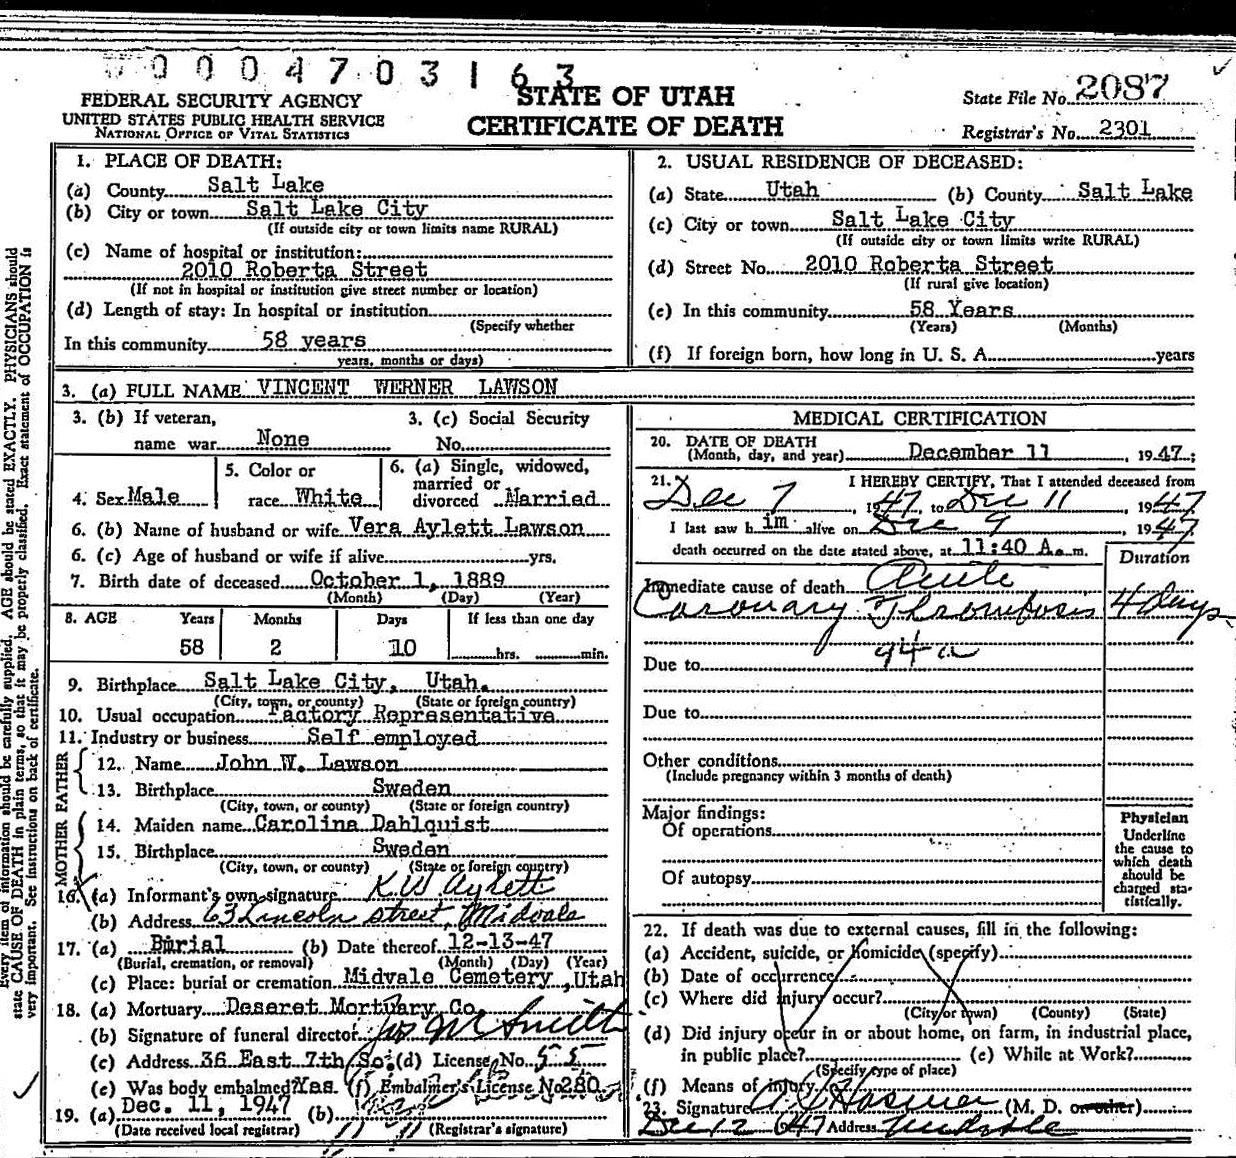 0004703163
FEDERAL SECURITY AGENCY
UNITED STATES PUBLIC HEALTH SERVICE
NATIONAL OFFICE OF VITAL STATISTICS
STATE OF UTAH
CERTIFICATE OF DEATH
State File No. 2087
Registrar's No. 2301
1. PLACE OF DEATH:
(a) County Salt Lake
(b) City or town Salt Lake City
(If outside city or town limits name RURAL)
(c) Name of hospital or institution:
2010 Roberta Street
(If not in hospital or institution give street number or location)
(d) Length of stay: In hospital or institution
(Specify whether
In this community 58 years
years, months or days)
2. USUAL RESIDENCE OF DECEASED:
(a) State Utah (b) County Salt Lake
(c) City or town Salt Lake City
(If outside city or town limits write RURAL)
(d) Street No. 2010 Roberta Street
(If rural give location)
(e) In this community 58 Years
(Years) (Months)
(f) If foreign born, how long in U. S. A. years
3. (a) FULL NAME VINCENT WERNER LAWSON
3. (b) If veteran,
name war None
3. (c) Social Security
No.
4. Sex Male
5. Color or
race White
6. (a) Single, widowed,
married or
divorced Married
6. (b) Name of husband or wife Vera Aylett Lawson
6. (c) Age of husband or wife if alive yrs.
7. Birth date of deceased October 1, 1889
(Month) (Day) (Year)
8. AGE Years Months Days If less than one day
58 2 10 hrs. min.
9. Birthplace Salt Lake City, Utah.
(City, town, or county) (State or foreign country)
10. Usual occupation Factory Representative
11. Industry or business Self employed
FATHER
12. Name John W. Lawson
13. Birthplace Sweden
(City, town, or county) (State or foreign country)
MOTHER
14. Maiden name Carolina Dahlquist
15. Birthplace Sweden
(City, town, or county) (State or foreign country)
16. (a) Informant's own signature K W Aylett
(b) Address 63 Lincoln street, Midvale
17. (a) Burial (b) Date thereof 12-13-47
(Burial, cremation, or removal) (Month) (Day) (Year)
(c) Place: burial or cremation Midvale Cemetery, Utah
18. (a) Mortuary Deseret Mortuary Co.
(b) Signature of funeral director Jos M Smith
(c) Address 36 East 7th So. (d) License No. 55
(e) Was body embalmed? Yes. (f) Embalmer's License No. 280
19. (a) Dec. 11, 1947 (b)
(Date received local registrar) (Registrar's signature)
MEDICAL CERTIFICATION
20. DATE OF DEATH
(Month, day, and year) December 11, 1947;
21. I HEREBY CERTIFY, That I attended deceased from
Dec 7, 1947, to Dec 11, 1947
I last saw him alive on Dec 9, 1947
death occurred on the date stated above, at 11:40 A. m.
Duration
Immediate cause of death Acute
Coronary Thrombosis 4 days
94a
Due to
Due to
Other conditions
(Include pregnancy within 3 months of death)
Major findings:
Of operations
Of autopsy
Physician
Underline
the cause to
which death
should be
charged sta-
tistically.
22. If death was due to external causes, fill in the following:
(a) Accident, suicide, or homicide (specify)
(b) Date of occurrence
(c) Where did injury occur?
(City or town) (County) (State)
(d) Did injury occur in or about home, on farm, in industrial place,
in public place? (e) While at Work?
(Specify type of place)
(f) Means of injury
23. Signature Hosmer (M. D. or other)
Dec 12 1947 Address Midvale
Every item of information should be carefully supplied. AGE should be stated EXACTLY. PHYSICIANS should
state CAUSE OF DEATH in plain terms, so that it may be properly classified. Exact statement of OCCUPATION is
very important. See instructions on back of certificate.